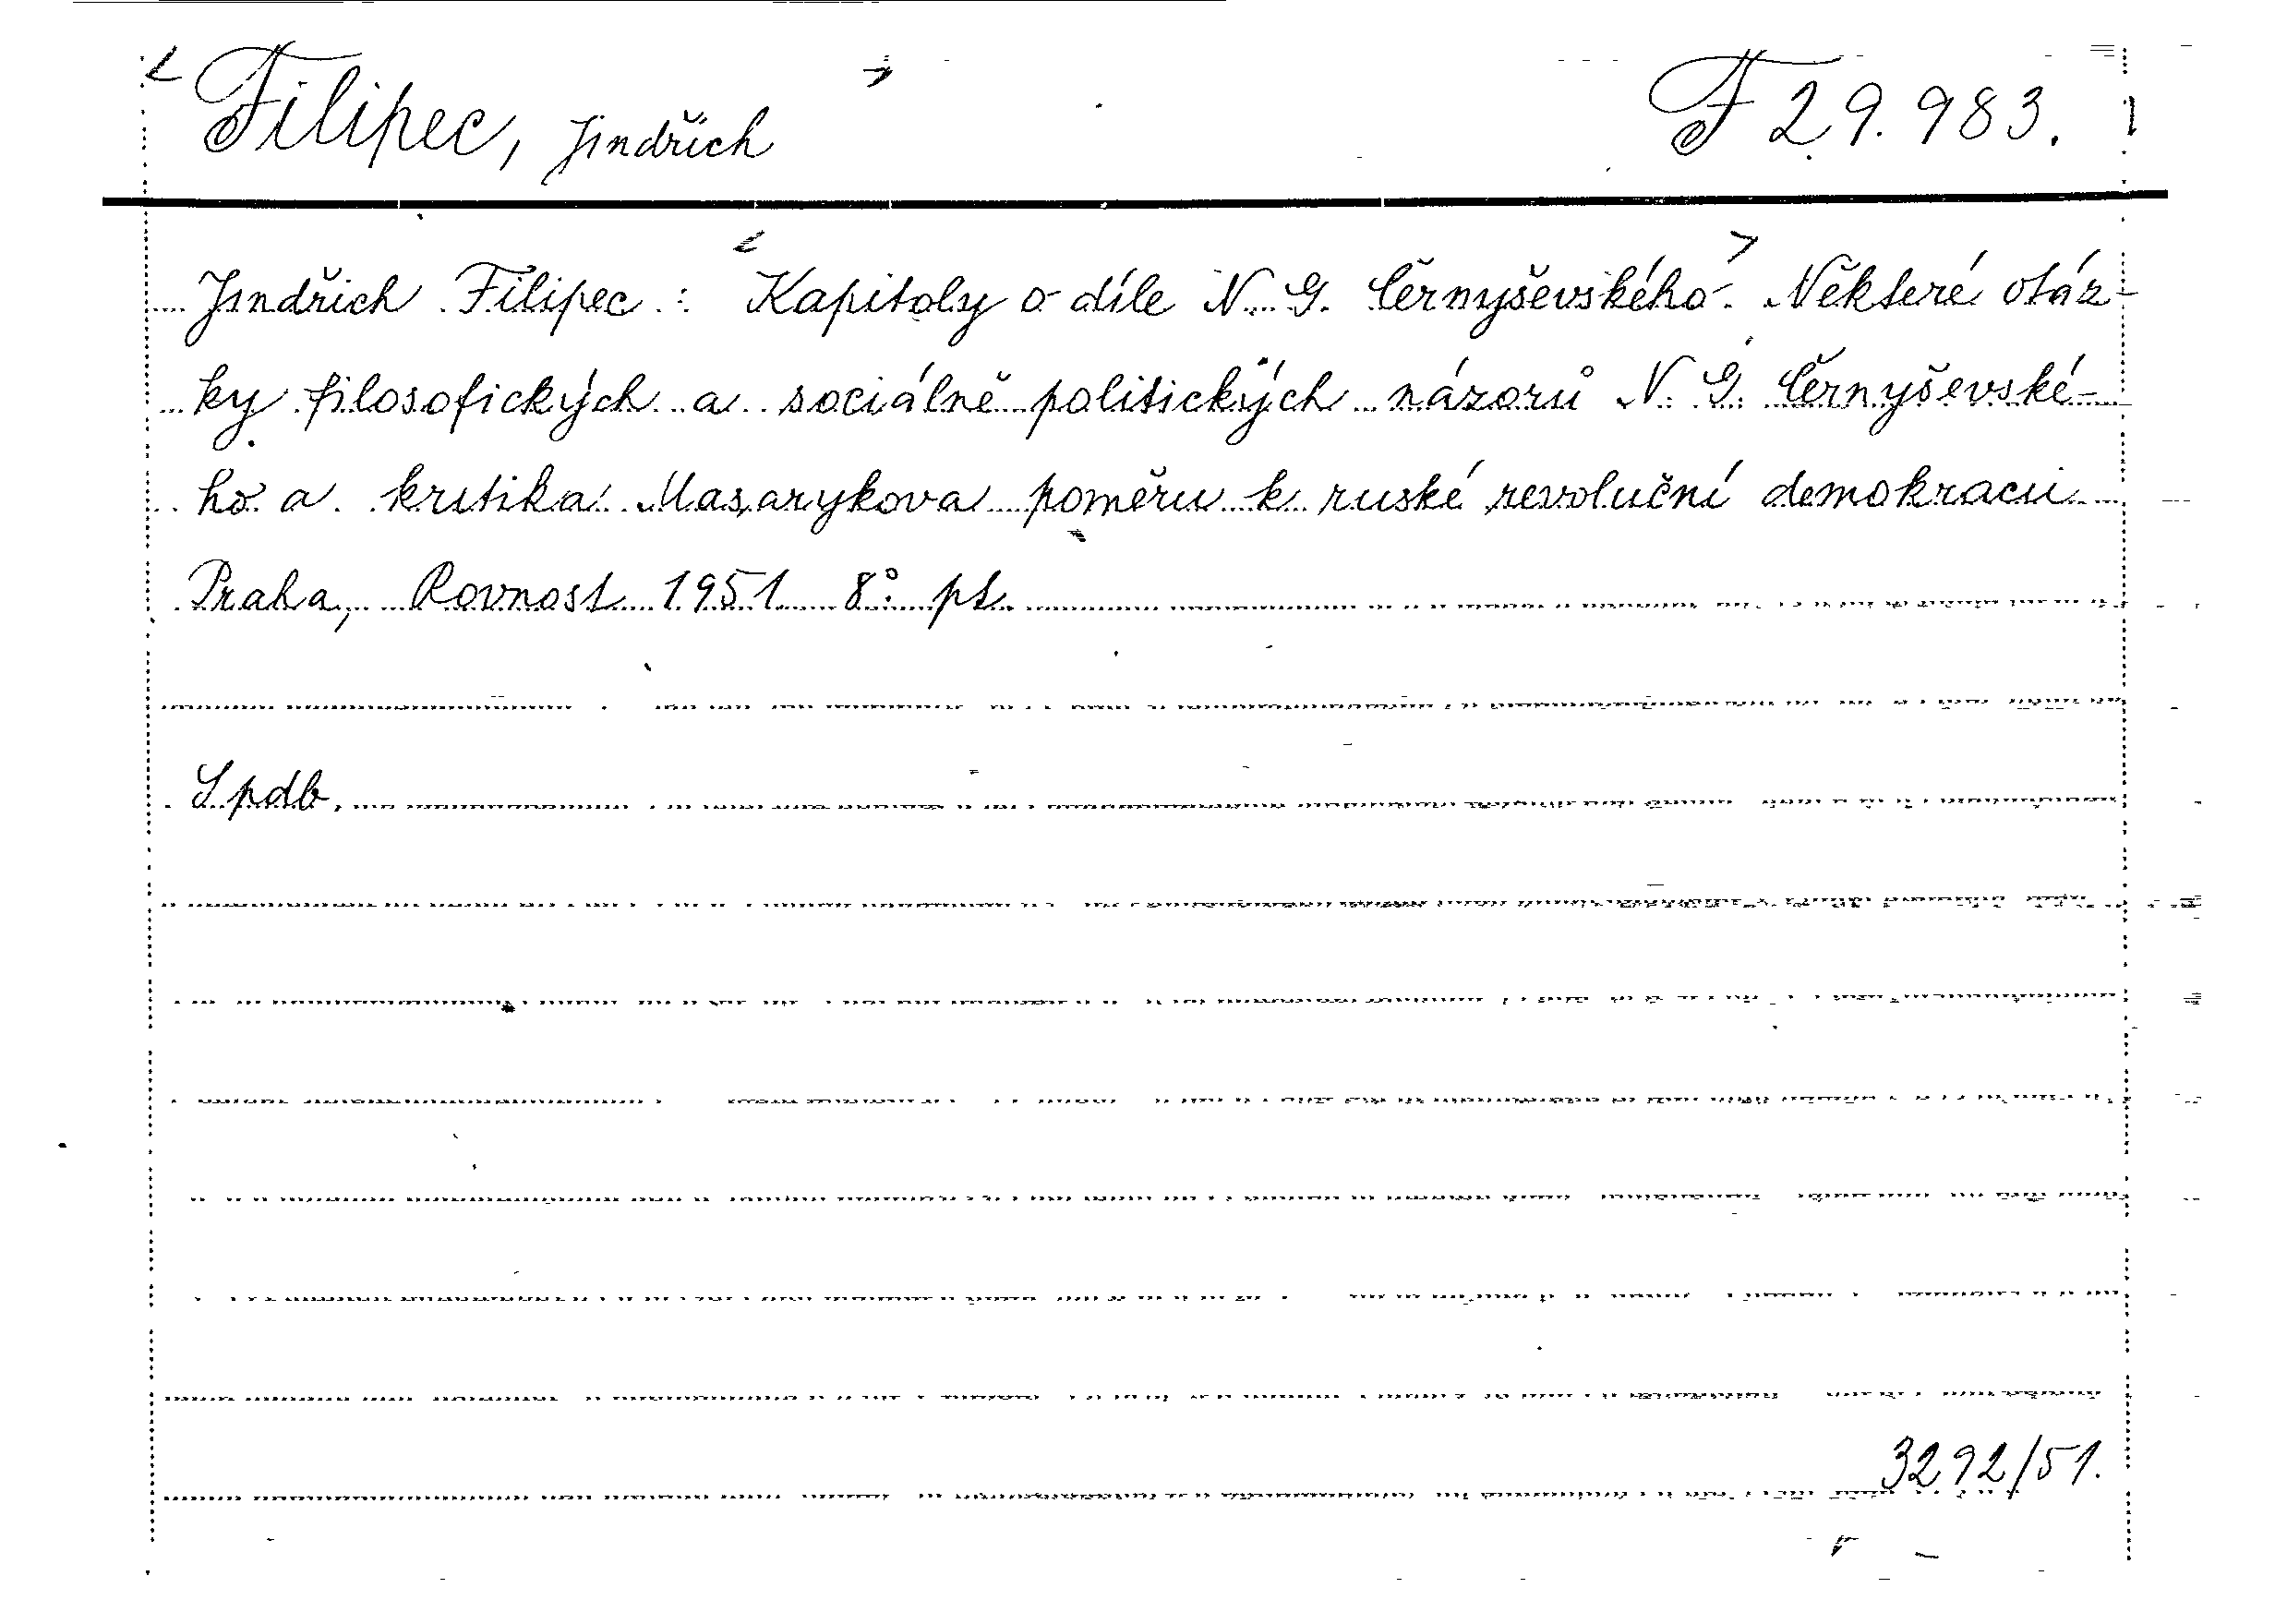 Filipec, Jindřich F 29.983.
Jindřich Filipec : Kapitoly o díle N. G. Černyševského. Některé otáz-
ky filosofických a sociálně politických názorů N. G. Černyševské-
ho a kritika Masarykova poměru k ruské revoluční demokracii
Praha, Rovnost 1951 8° pt.
S pdb.
3292/51.